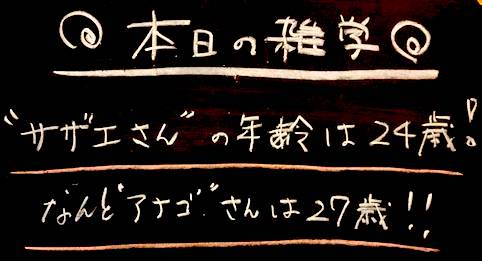 本日の雑学
"サザエさん"の年齢は24歳!
なんと"アナゴ"さんは27歳!!